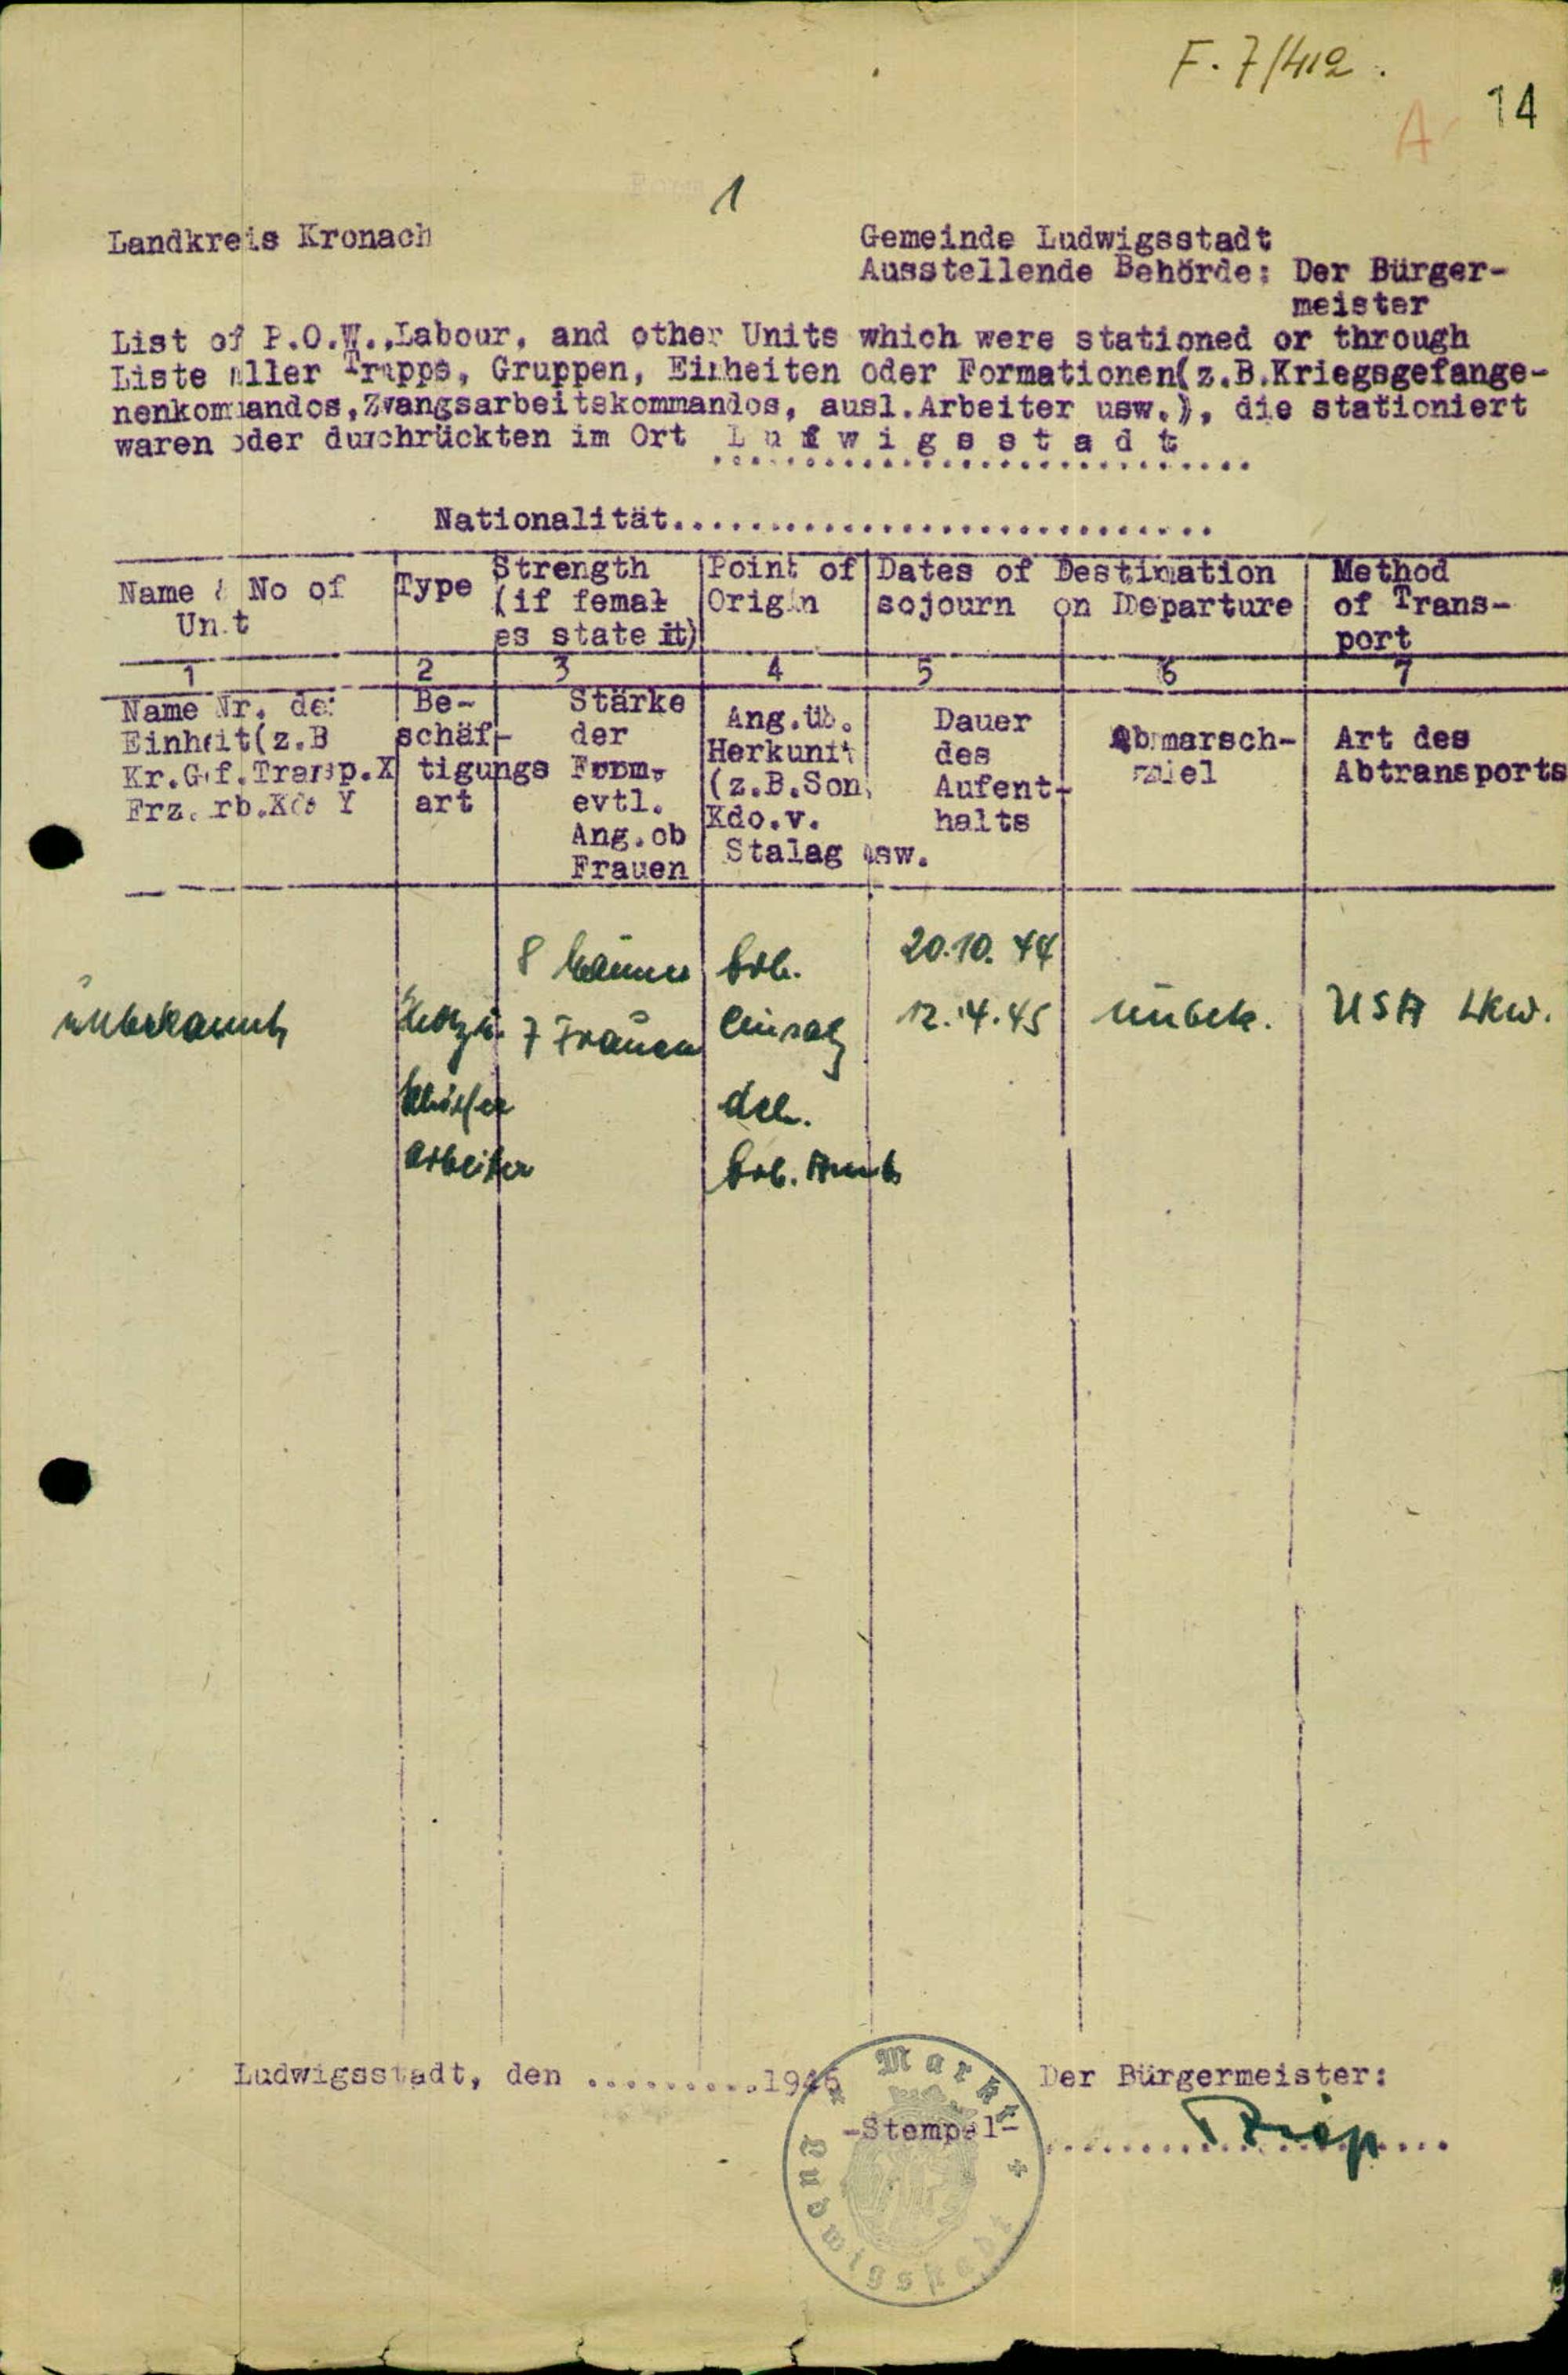 F. 7/412.
14
A
1
Landkreis Kronach
Gemeinde Ludwigsstadt
Ausstellende Behörde: Der Bürger-
meister
List of P.O.W.,Labour, and other Units which were stationed or through
Liste aller Trupps, Gruppen, Einheiten oder Formationen(z.B.Kriegsgefange-
nenkommandos,Zwangsarbeitskommandos, ausl.Arbeiter usw.), die stationiert
waren oder durchrückten im Ort L u d w i g s s t a d t
Nationalität..............................
Name & No of Unit
Type
Strength (if femal es state it)
Point of Origin
Dates of sojourn
Destination on Departure
Method of Trans- port
1 2 3 4 5 6 7
Name Nr. der Einheit(z.B Kr.Gef.Transp.X Frz. rb.Kdo Y
Be- schäf- tigungs art
Stärke der Form. evtl. Ang.ob Frauen
Ang.üb. Herkunft (z.B.Son. Kdo.v. Stalag usw.
Dauer des Aufent- halts
Abmarsch- ziel
Art des Abtransports
8 Männer Arb. 20.10.44
unbekannt 7 Frauen einsatz 12.4.45 unbek. USA Lkw.
Schiefer
arbeiter Arb. Amt
Ludwigsstadt, den ..........1946
Der Bürgermeister:
-Stempel-
Markt Ludwigsstadt